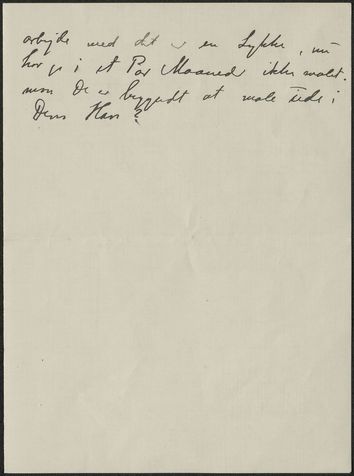 arbejde med det er en Lykke, nu
har jeg i et Par Maaneder ikke malet.
mon De er begyndt at male ude i
Deres Have?